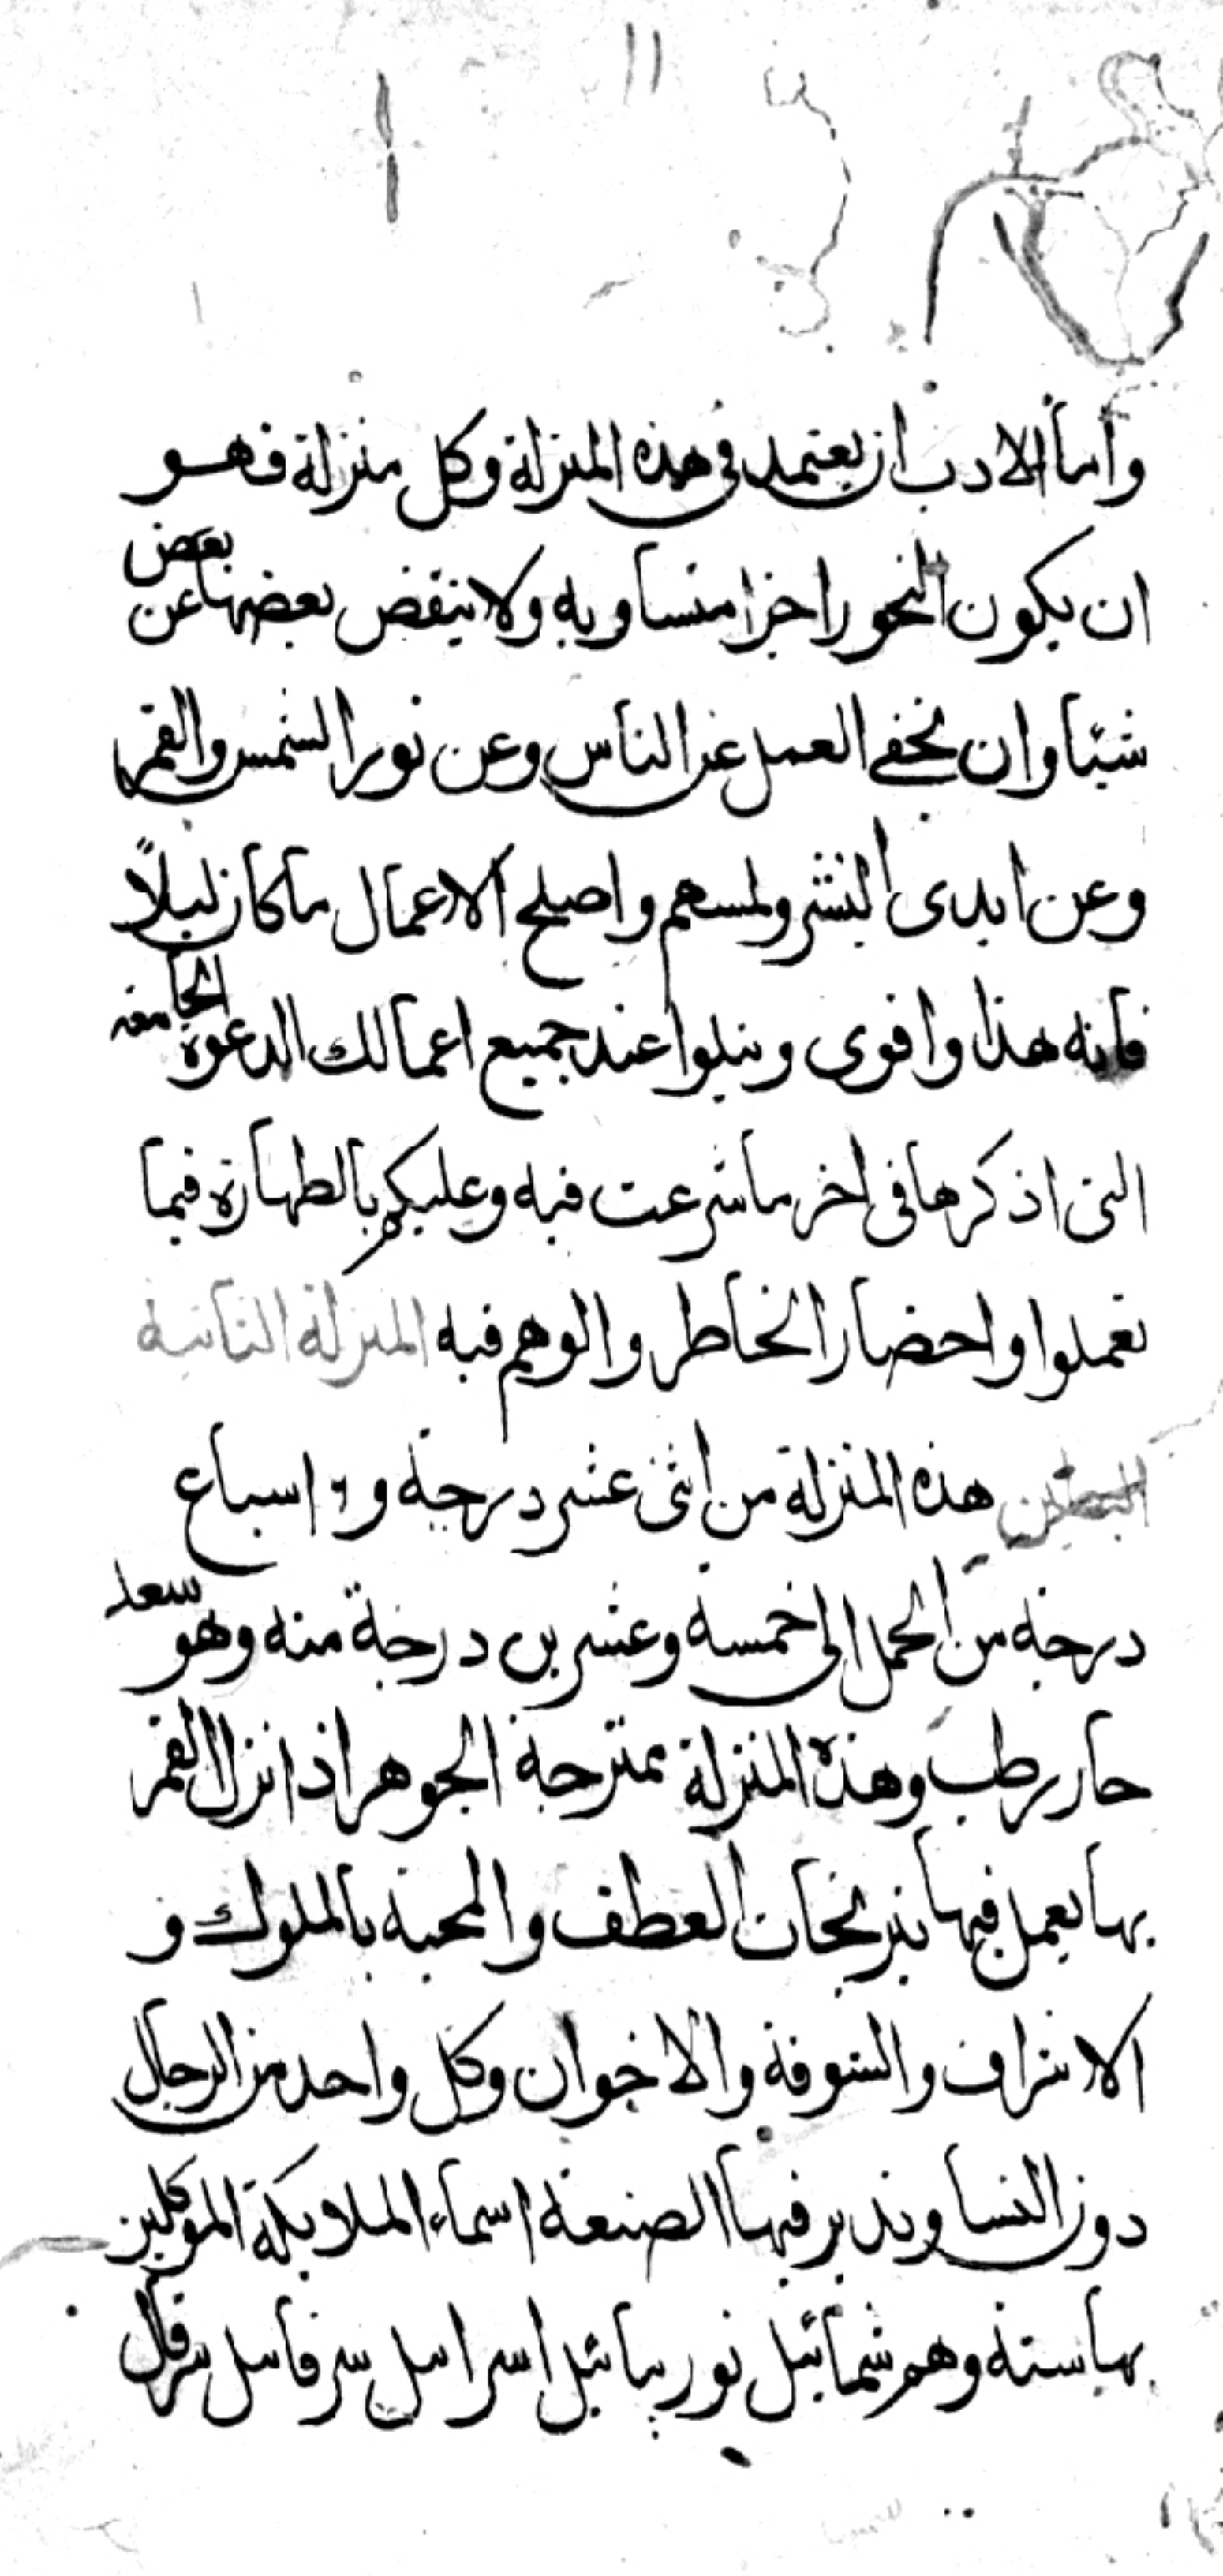 واما الادب ان يعتمد فى هذه المنزلة وكل منزلة فهو
ان يكون البخور اجزا متساويه ولا ينقص بعضها عن بعض
شيئا وان يخفى العمل عن الناس وعن نور الشمس والقمر
وعن ايدى البشر ولمسهم واصلح الاعمال ما كان ليلاً
فانه هذا واقوى ويتلوا عند جميع اعمالك الدعوة الجامعه
التى اذكرها فى اخر ما شرعت فيه وعليكم بالطهارة فيما
تعملوا واحضار الخاطر والوهم فيه المنزلة الثانية
البطين هذه المنزلة من اثنى عشر درجة و٦ اسباع
درجة من الحمل الى خمسة وعشرين درجة منه وهو سعد
حار رطب وهذه المنزلة ممتزجة الجوهر اذا نزل القمر
بها يعمل فيها نيرنجات العطف والمحبة بالملوك و
الاشراف والسوقة والاخوان وكل واحد من الرجال
دون النسا وتدبر فيها الصنعة اسماء الملايكة الموكلين
بها ستة وهم شمائيل نوريائيل اسرايل سرفايل